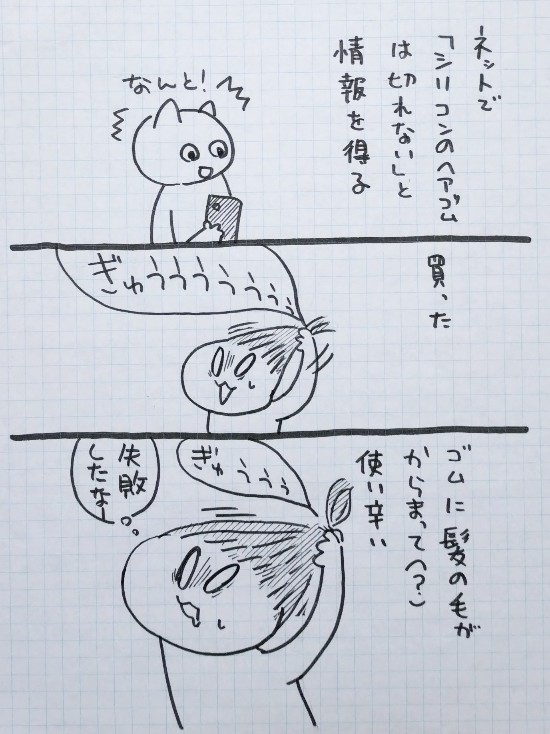 ネットで
「シリコンのヘアゴム
は切れない」と
情報を得る
なんと!
買った
ぎゅううううううう
ゴムに髪の毛が
からまって(?)
使い辛い
ぎゅううう
失敗
したなー